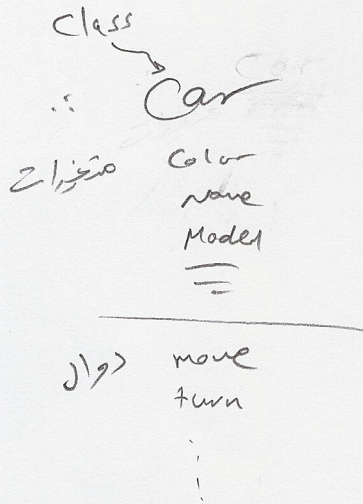 Class
Car
متغيرات Color
Name
Model
دوال move
turn